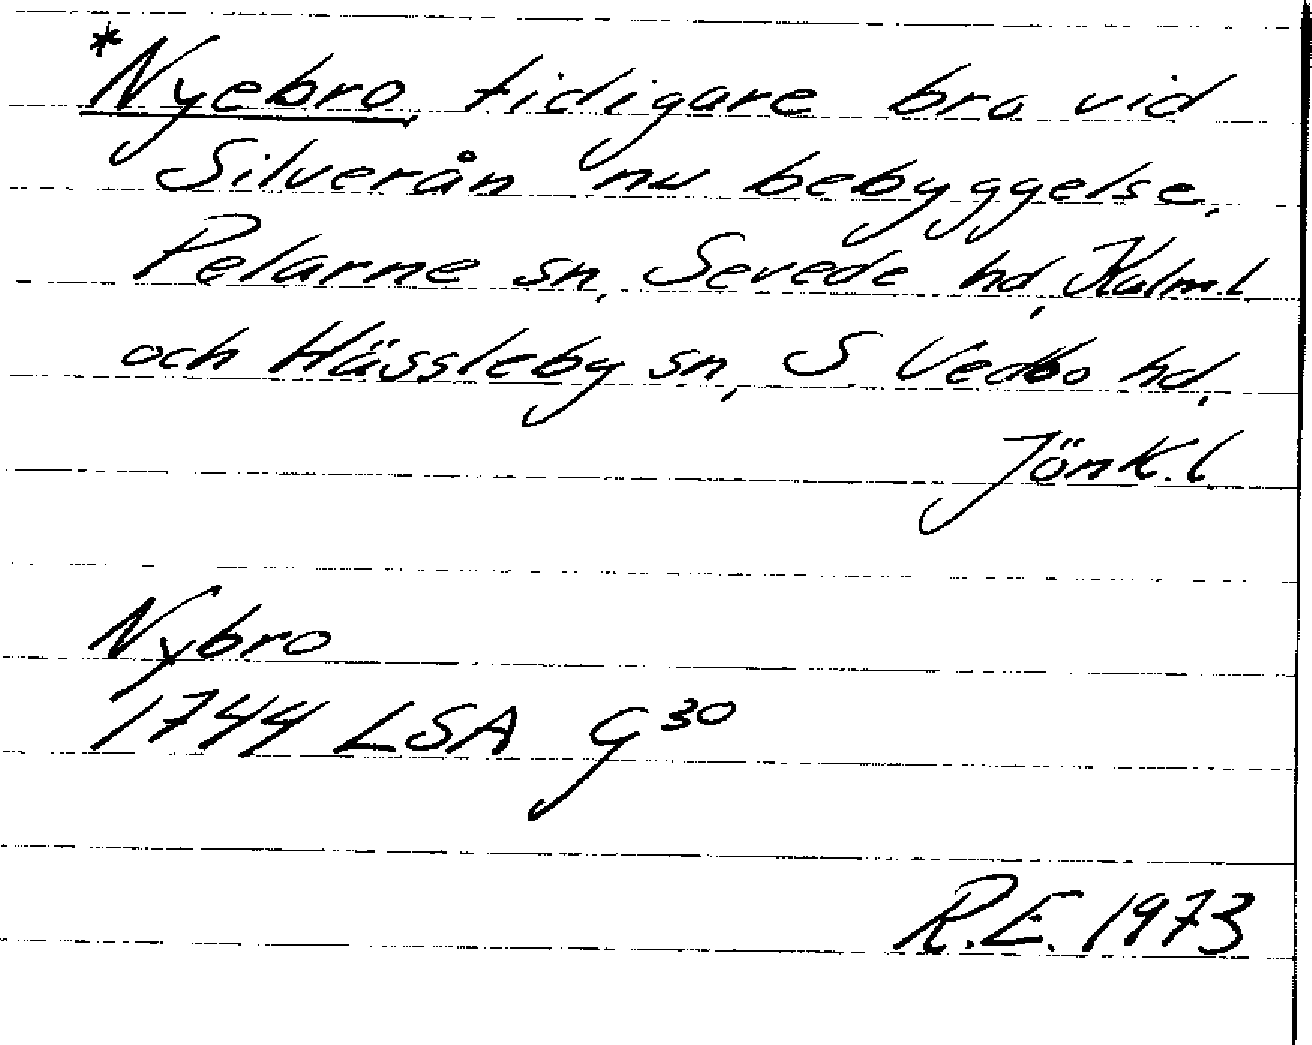 *Nyebro tidigare bro vid
Silverån nu bebyggelse,
Pelarne sn, Sevede hd, Kalm.l.
och Hässleby sn, S Vedbo hd,
Jönk.l.
Nybro
1744 LSA G 30
R.E. 1973